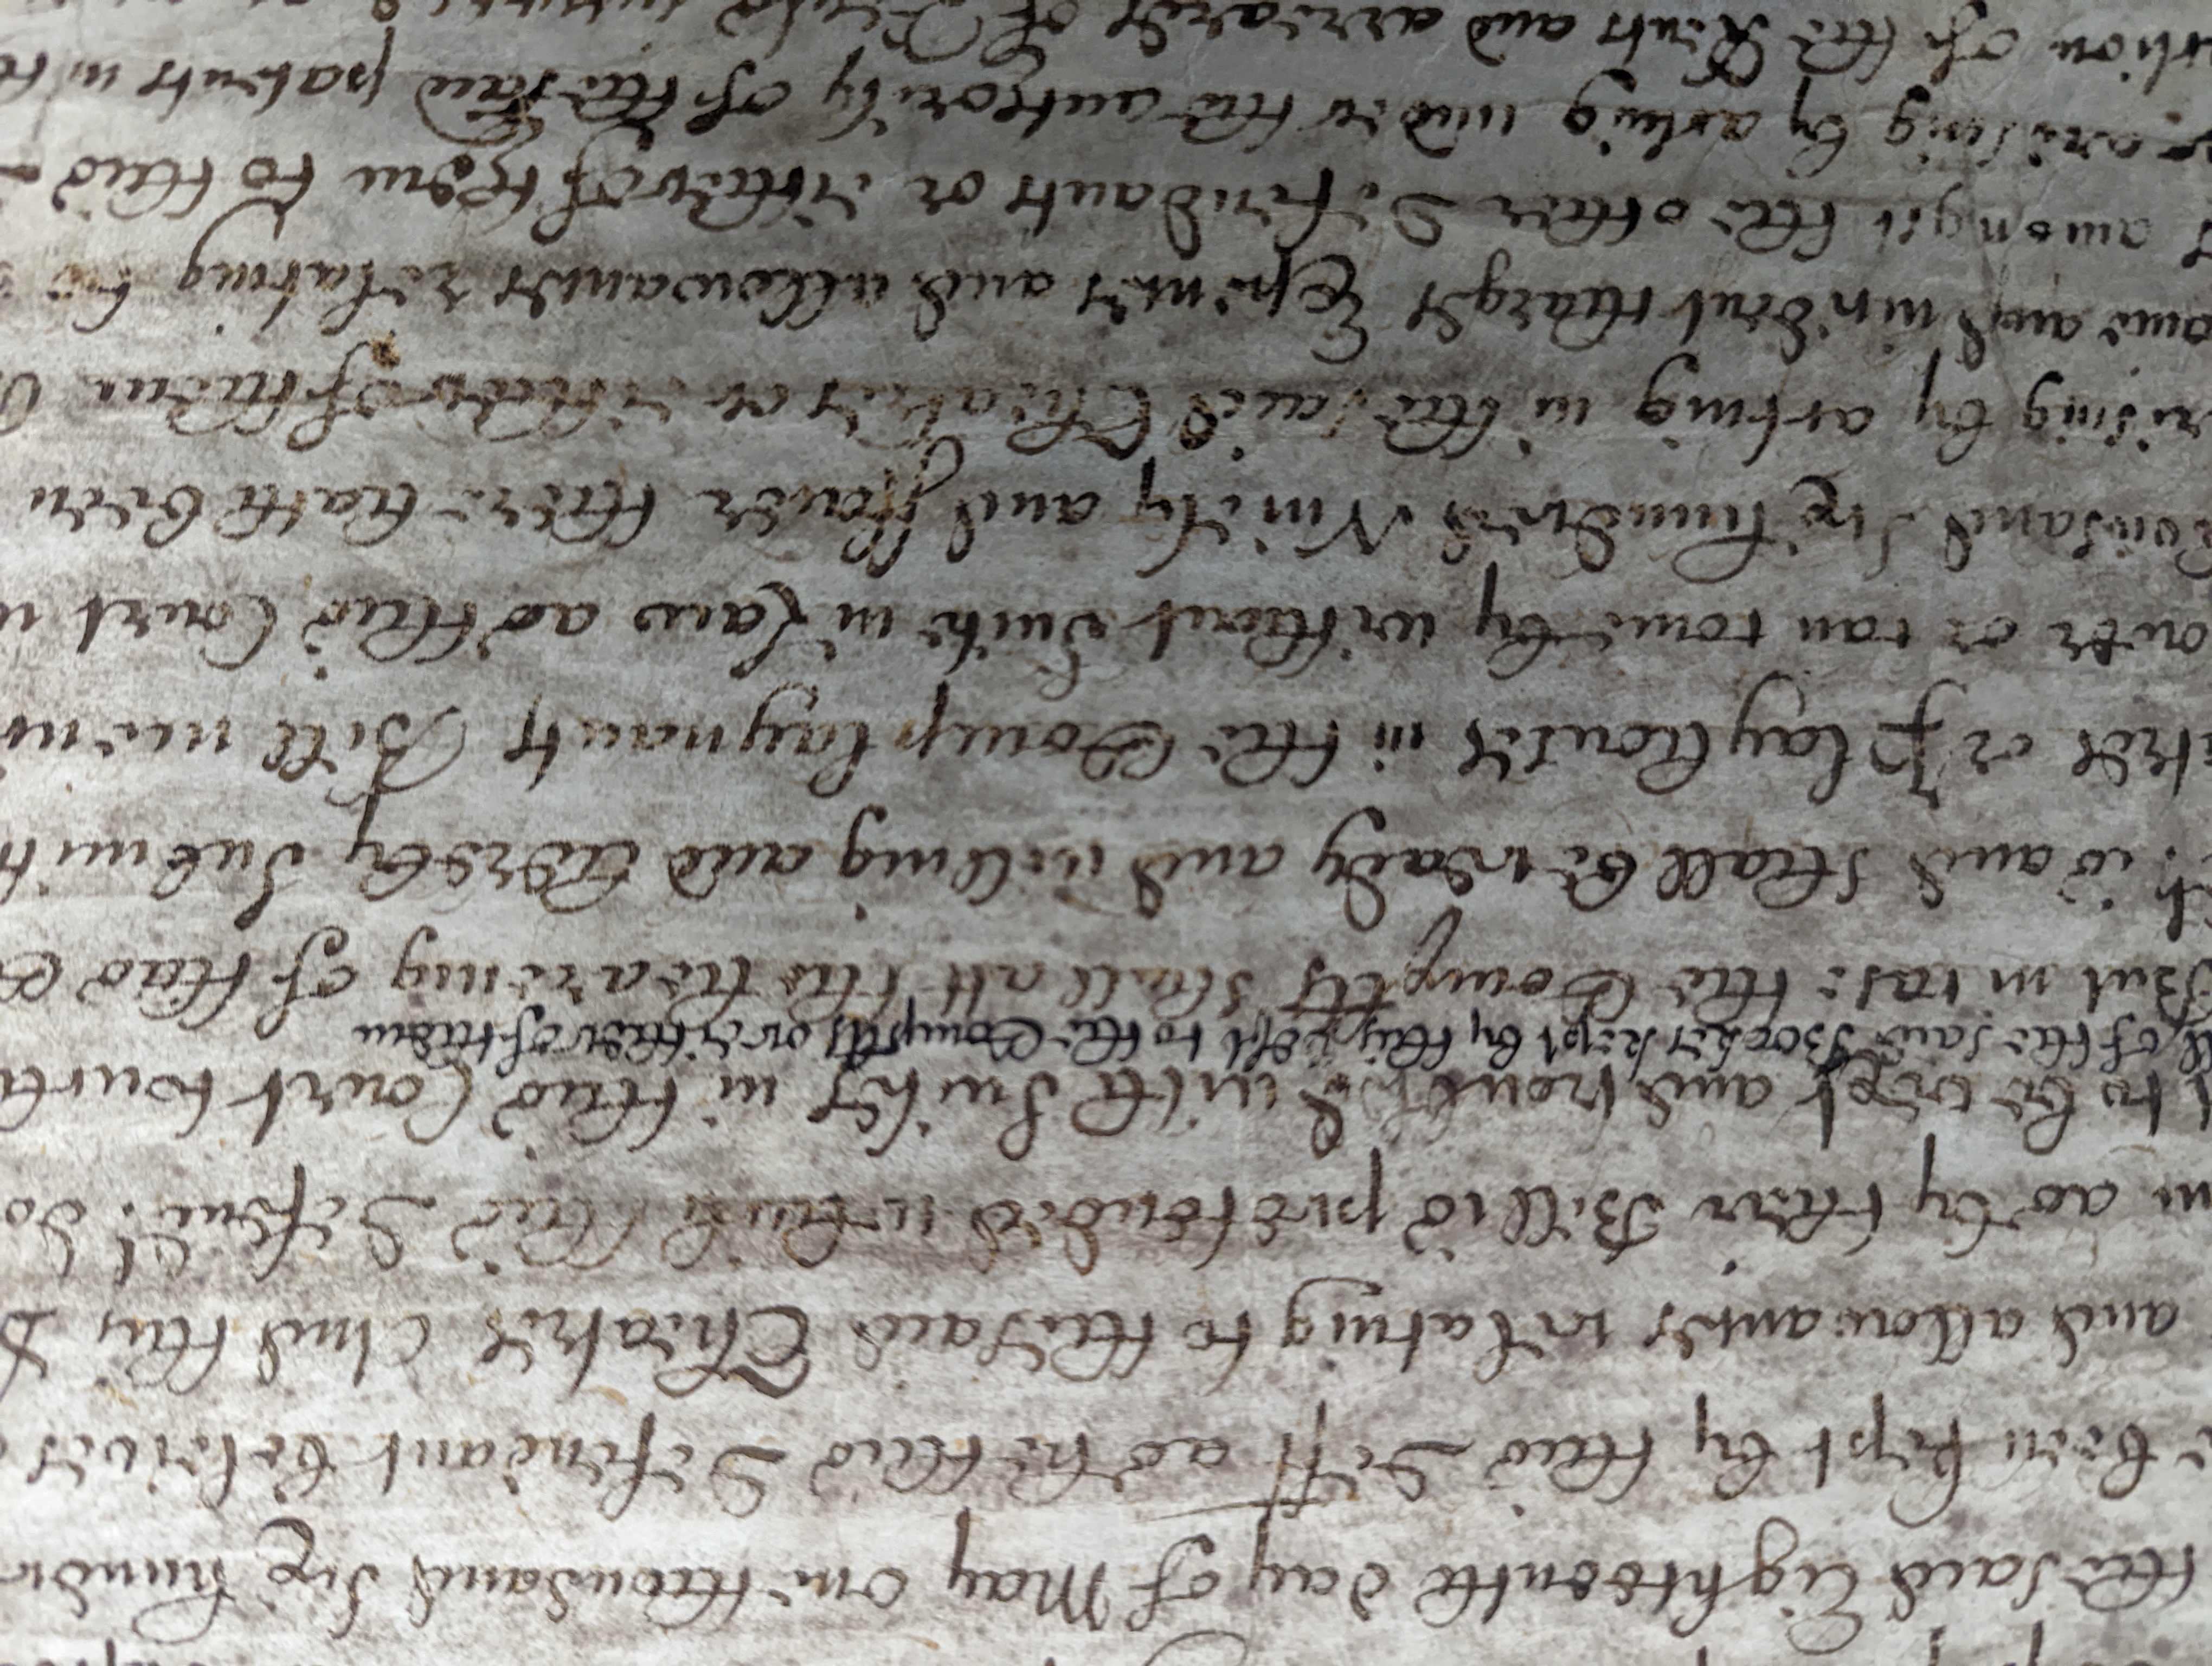 the said Eighteenth day of May one thousand Six hundr
been kept by this Deft as he this Defendant beleives
and allowances relating to the said Theatres And this D
in as by their Bill is pretended this Defend.t do
to be vext and troubled with Suites in this Court touch
of the said Bookes kept by this Deft to the Complts or either of them
But in case the Complts shall att the hearing of this C
is and shall be ready and willing and hereby Submitt
or Playhouses in the Complaynants Bill menc
or can come by without Suite in Law as this Court
thousand Six hundred Ninety and ffower there hath been
rising by acting in the said Theatres or either of them
and incident charges Expences and allowances relating
amongst the other Defendants or either of them to this
arising by acting under the authority of the said patents
of the Rents and arreares of